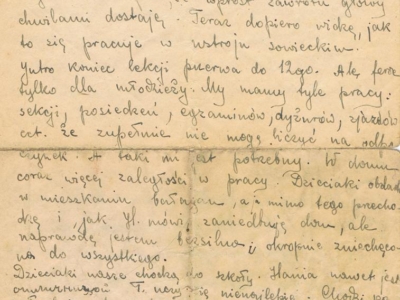 wprost zawrotu głowy
chwilami dostaję. Teraz dopiero widzę, jak
to się pracuje w ustroju sowieckim.
Jutro koniec lekcji przerwa do 12go. Ale fer
tylko dla młodzieży. My mamy tyle pracy:
sekcji, posiedzeń, egzaminów, dyżurów, zjazdów
ect. że zupełnie nie mogę liczyć na odpo
czynek. A taki mi jest potrzebny. W domu
coraz więcej zaległości w pracy. Dzieciaki
w mieszkaniu bałagan, a mimo tego
i jak H. mówi zaniedbuję dom, ale
naprawdę jestem bezsilna i okropnie zniechęco
na do wszystkiego.
Dzieciaki nasze chodzą do szkoły. Hania nawet jest
T. uczy się nienajlepiej. Chodzi